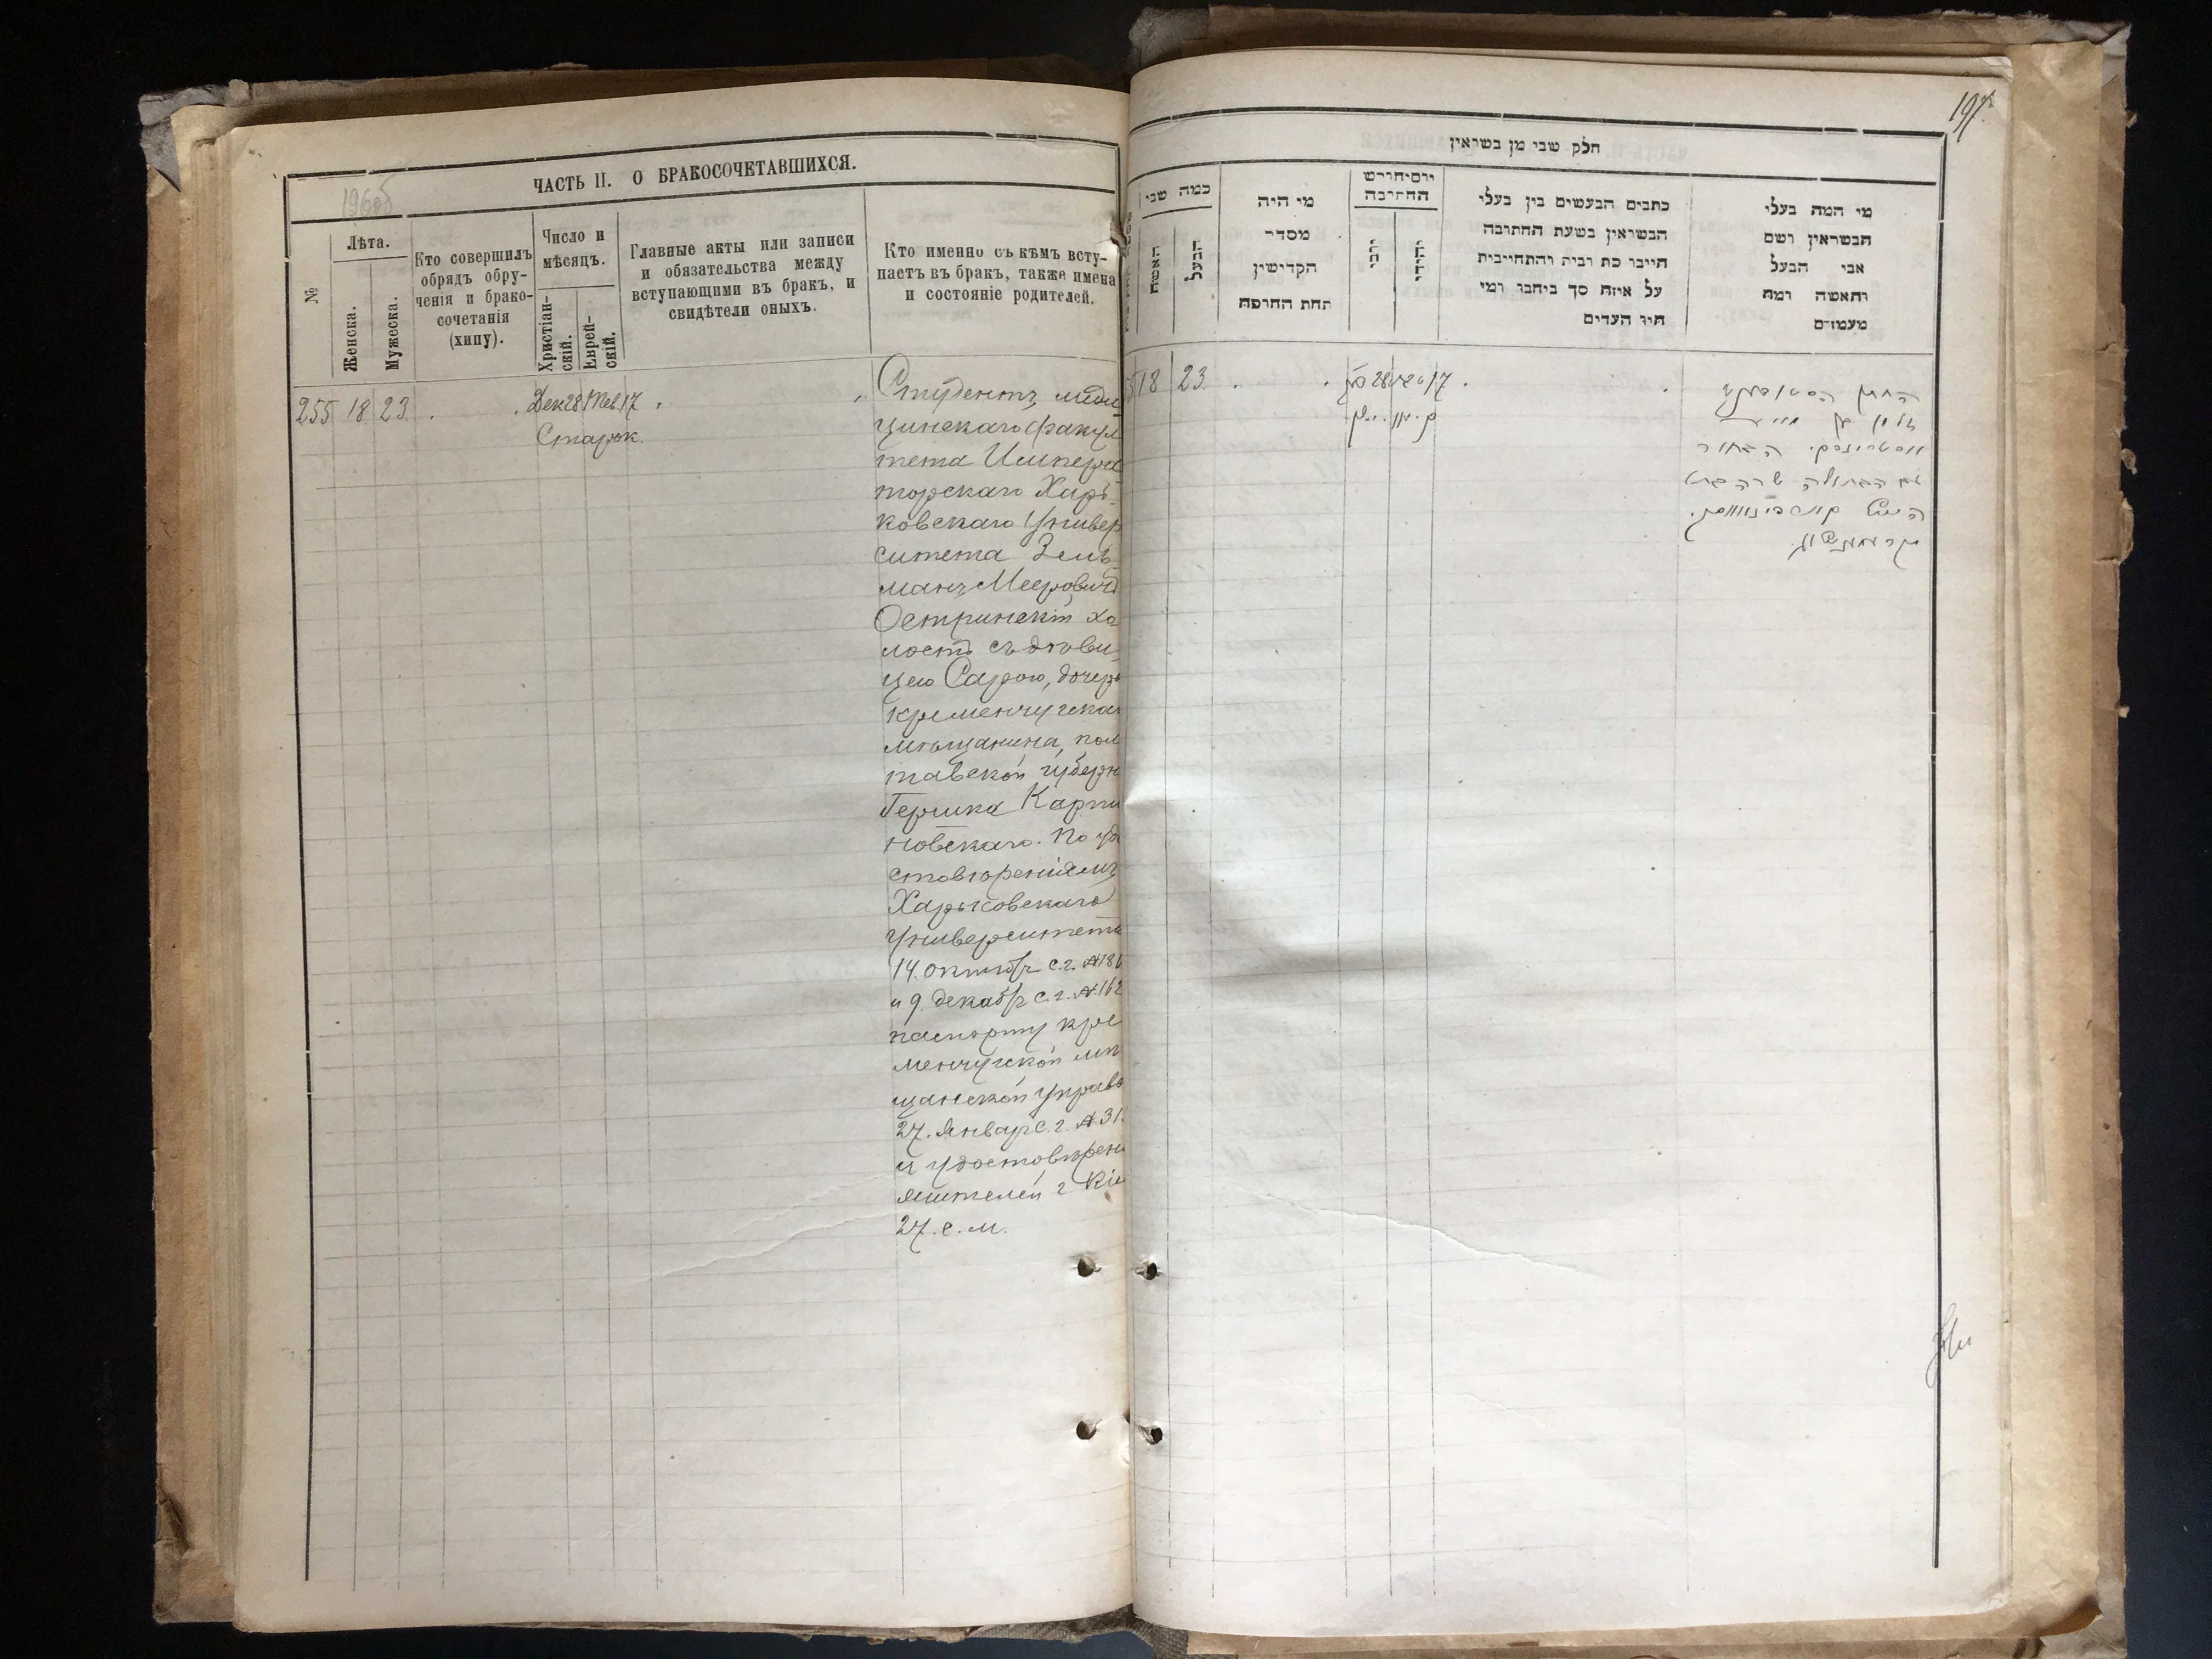 196об
ЧАСТЬ II. О БРАКОСОЧЕТАВШИХСЯ.
№
Лѣта.
Женска.
Мужеска.
Кто совершилъ
обрядъ обру-
ченія и брако-
сочетанія
(хипу).
Число и
мѣсяцъ.
Христіан-
скій.
Еврей-
скій.
Главные акты или записи
и обязательства между
вступающими въ бракъ, и
свидѣтели оныхъ.
Кто именно съ кѣмъ всту-
паетъ въ бракъ, также имена
и состояніе родителей.
255 18 23 Дек 28 Тев 17
Старок.
Студентъ меди
цинскаго факул
тета Импера
торскаго Харь
ковскаго Универ
ситета Зель
манъ Мееровичъ
Остринскій хо
лостъ съ дѣви
цею Сарою, дочерь
кременчугскаг
мѣщанина, пол
тавской губерн
Гершка Карпи
новскаго. По удо
стовѣреніямъ
Харьковскаго
Университета
14. октябр с.г. №
и 9. декабр с.г. № 162
паспорту кре
менчугской мѣ
щанской управ
27. Январ с.г. № 31.
и удостовѣрен
жителей г. Кіе
27. с. м.
197
חלק שני מן בשואין
כמה שני
האשה
הבעל
מי היה
מסדר
הקדישין
תחת החופה
יום וחודש
החתובה
כתבים הנעשים בין בעלי
הנשואין בשעת החתובה
חייבו כת רבית והתחייבית
על איזה סך ביחבו ומי
חיו העדים
מי המה בעלי
הנשואין ושם
אבי הבעל
והאשה ומה
מעמדם
18 23 28 17
החתן הסטודענט
זלמן בן מאיר
אסטרינסקי הבחור
עם הבתולה שרה בת
הירש קארפינאווסקי
קרעמענטשוג